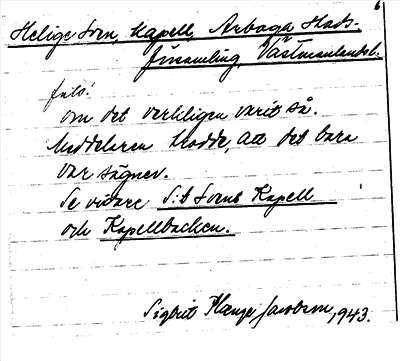 6
Helige Sven, Kapell, Arboga Stads-
församling, Västmanlandsl.
forts.
om det verkligen varit så.
Meddelaren trodde, att det bara
var sägner.
Se vidare S:t Svens Kapell
och Kapellbacken.
Sigbrit Plænge Jacobson, 1943.